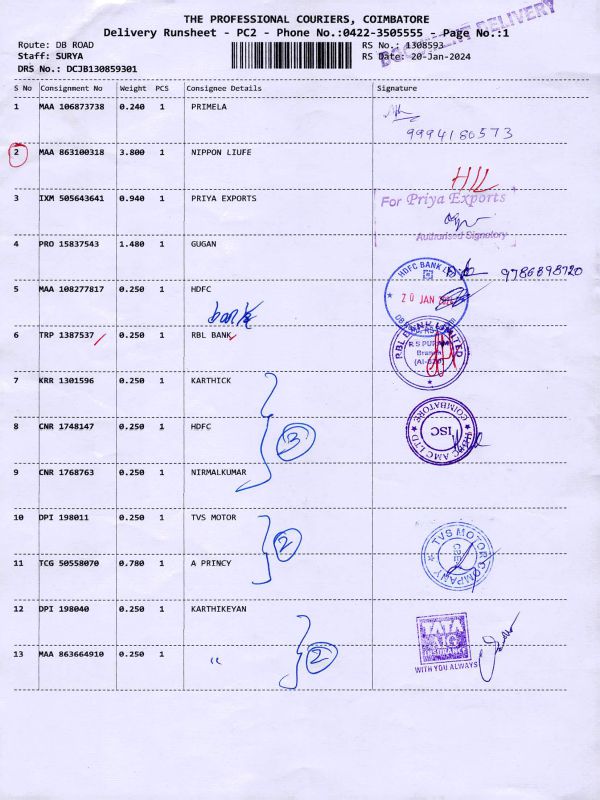 THE PROFESSIONAL COURIERS, COIMBATORE
Delivery Runsheet - PC2 - Phone No.:0422-3505555 - Page No.:1
DOCUMENT DELIVERY
Route: DB ROAD
RS No.: 1308593
Staff: SURYA
RS Date: 20-Jan-2024
DRS No.: DCJB130859301
S No Consignment No Weight PCS Consignee Details Signature
1 MAA 106873738 0.240 1 PRIMELA
9994180573
2 MAA 863100318 3.800 1 NIPPON LIUFE
HIL
3 IXM 505643641 0.940 1 PRIYA EXPORTS
For Priya Exports
Authorised Signatory
4 PRO 15837543 1.480 1 GUGAN
9786898720
5 MAA 108277817 0.250 1 HDFC
bank
HDFC BANK
20 JAN
6 TRP 1387537 0.250 1 RBL BANK
RBL BANK LIMITED
R S PURAM
Branch
7 KRR 1301596 0.250 1 KARTHICK
8 CNR 1748147 0.250 1 HDFC
3
HDFC AMC LTD
COIMBATORE
ISC
9 CNR 1768763 0.250 1 NIRMALKUMAR
10 DPI 198011 0.250 1 TVS MOTOR
2
TVS MOTOR COMPANY
CBE
11 TCG 50558070 0.780 1 A PRINCY
12 DPI 198040 0.250 1 KARTHIKEYAN
TATA
AIG
INSURANCE
WITH YOU ALWAYS
13 MAA 863664910 0.250 1 "
2